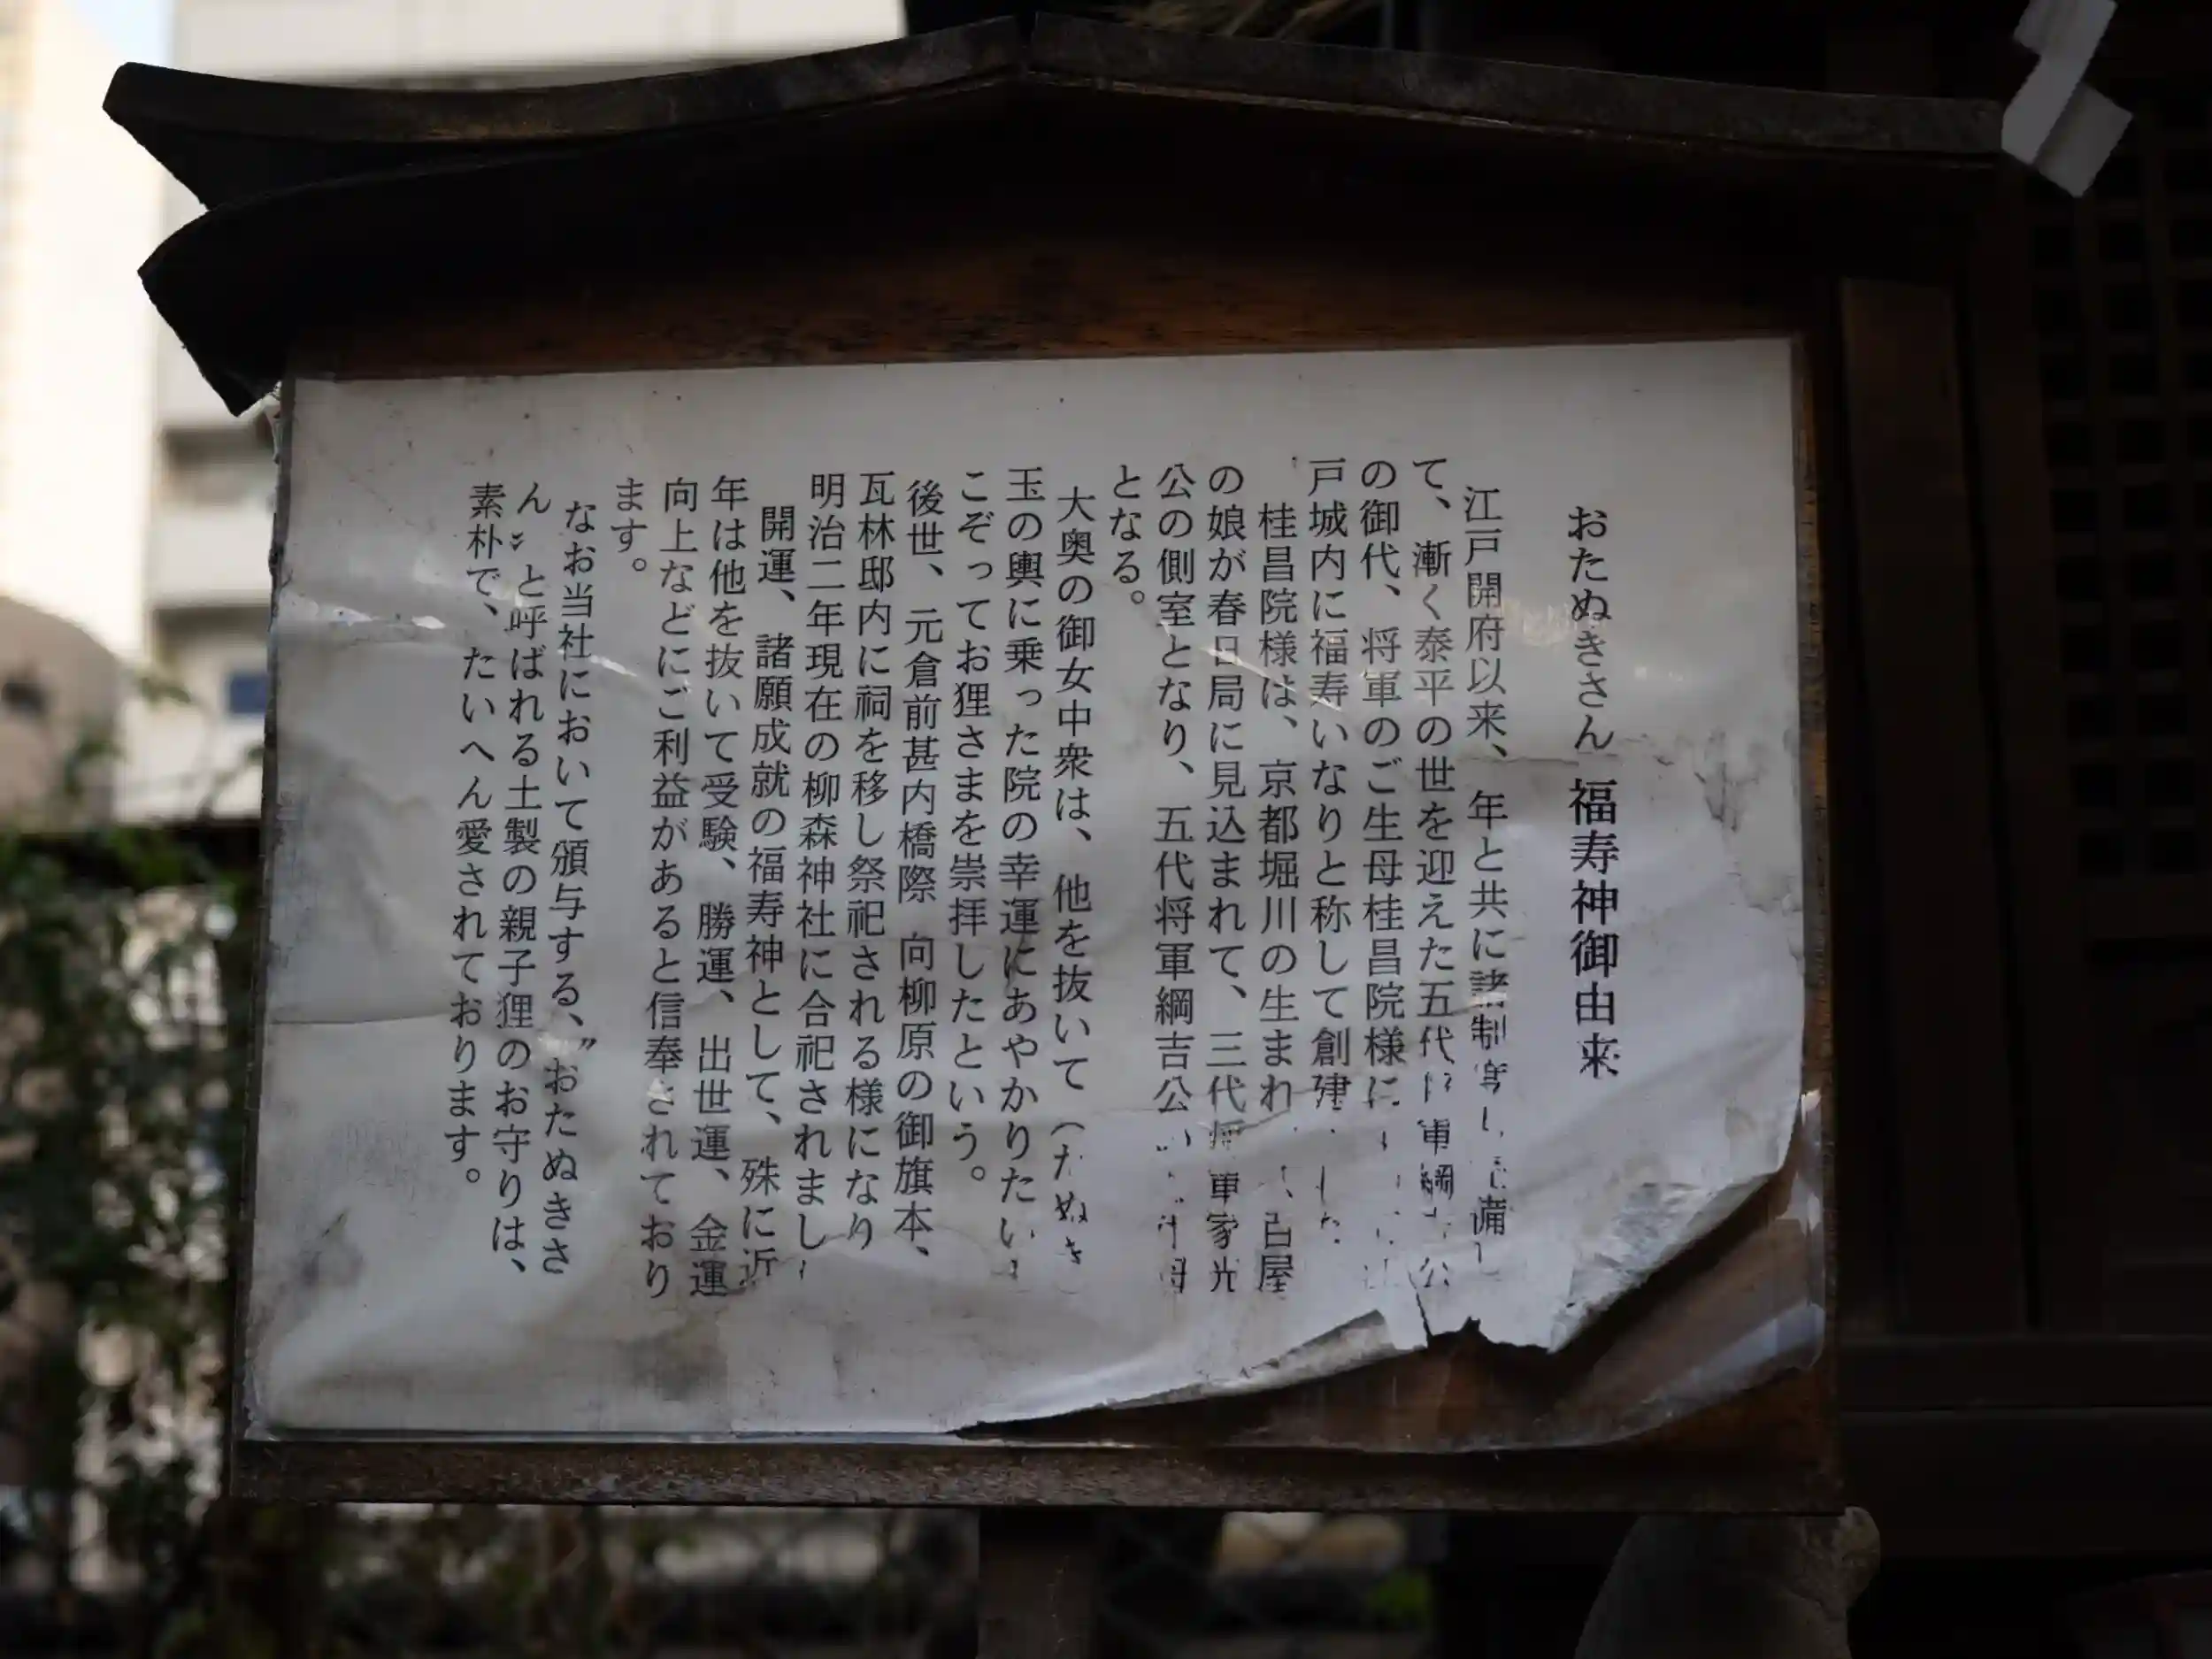 おたぬきさん 福寿神御由来
江戸開府以来、年と共に諸制
て、漸く泰平の世を迎えた五代 軍綱 公
の御代、将軍のご生母桂昌院様に
戸城内に福寿いなりと称して創建
桂昌院様は、京都堀川の生まれ 屋
の娘が春日局に見込まれて、三代将軍家光
公の側室となり、五代将軍綱吉公
となる。
大奥の御女中衆は、他を抜いて(たぬき
玉の輿に乗った院の幸運にあやかりたい
こぞってお狸さまを崇拝したという。
後世、元倉前甚内橋際 向柳原の御旗本、
瓦林邸内に祠を移し祭祀される様になり
明治二年現在の柳森神社に合祀されまし
開運、諸願成就の福寿神として、殊に近
年は他を抜いて受験、勝運、出世運、金運
向上などにご利益があると信奉されており
ます。
なお当社において頒与する、〝おたぬきさ
ん〟と呼ばれる土製の親子狸のお守りは、
素朴で、たいへん愛されております。